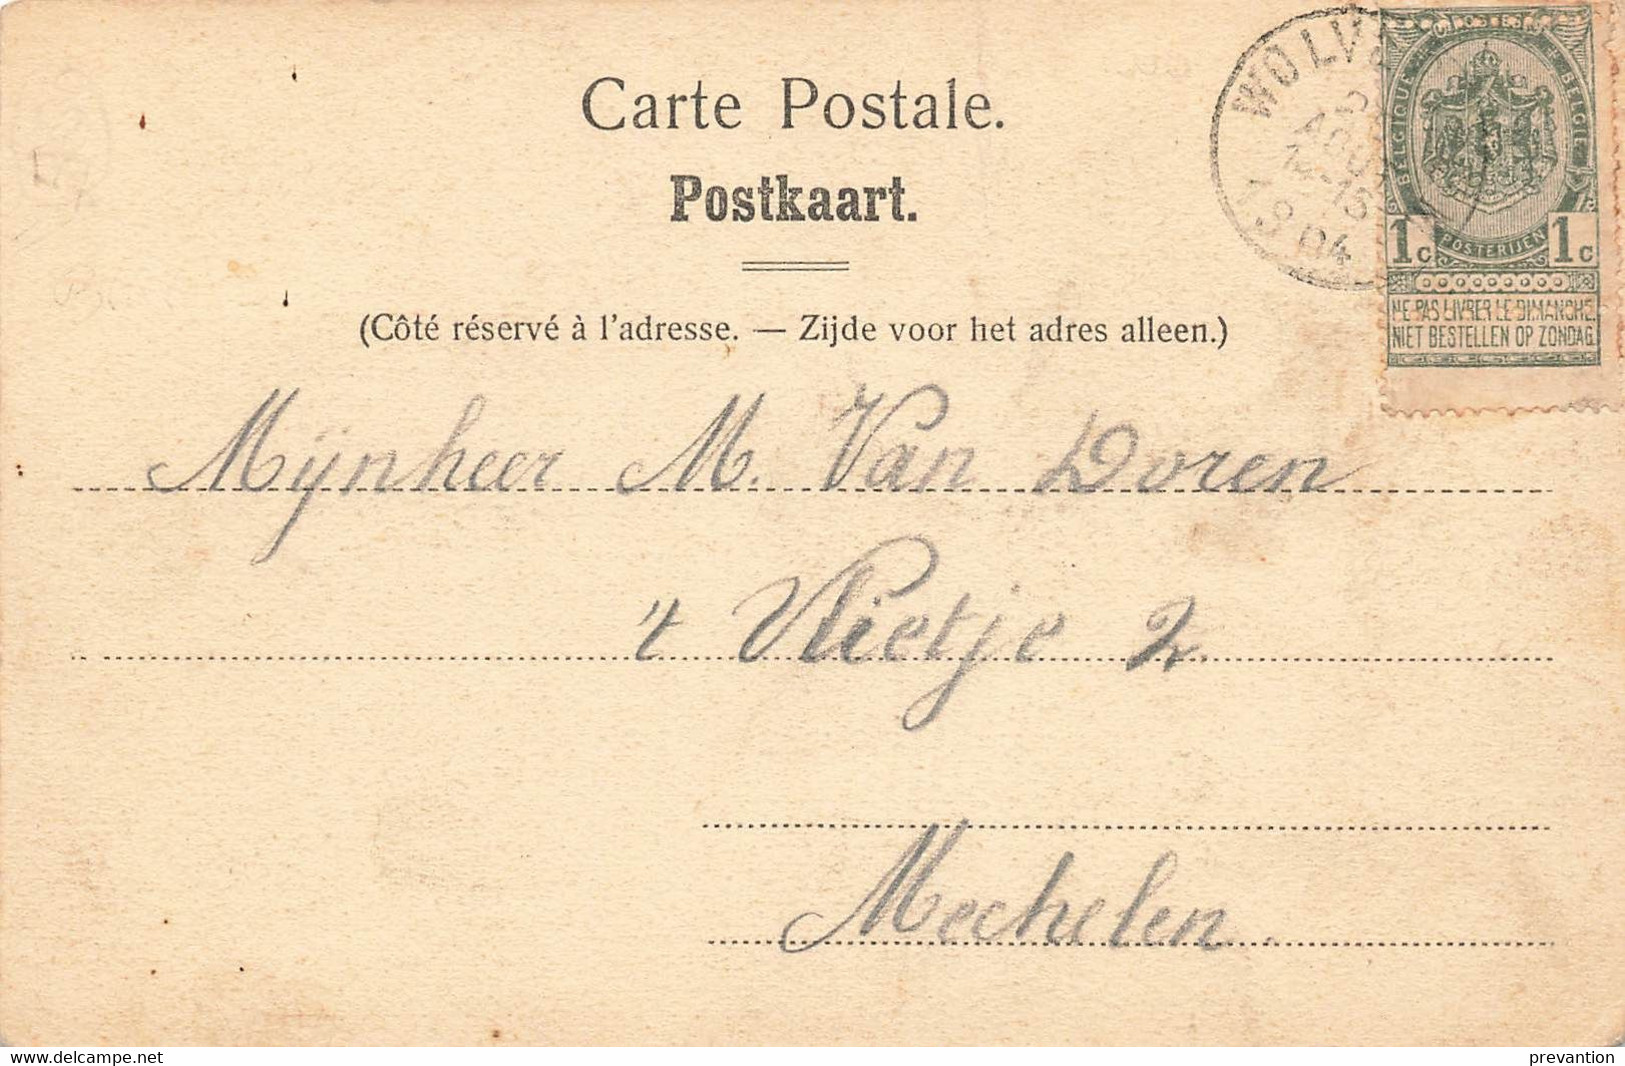 Carte Postale.
Postkaart.
(Côté réservé à l'adresse. — Zijde voor het adres alleen.)
AOUT
BELGIQUE
BELGIË
POSTERIJEN
1c 1c
NE PAS LIVRER LE DIMANCHE
NIET BESTELLEN OP ZONDAG
Mijnheer M. Van Doren
't Vlietje 2.
Mechelen.
delcampe.net
prevantion